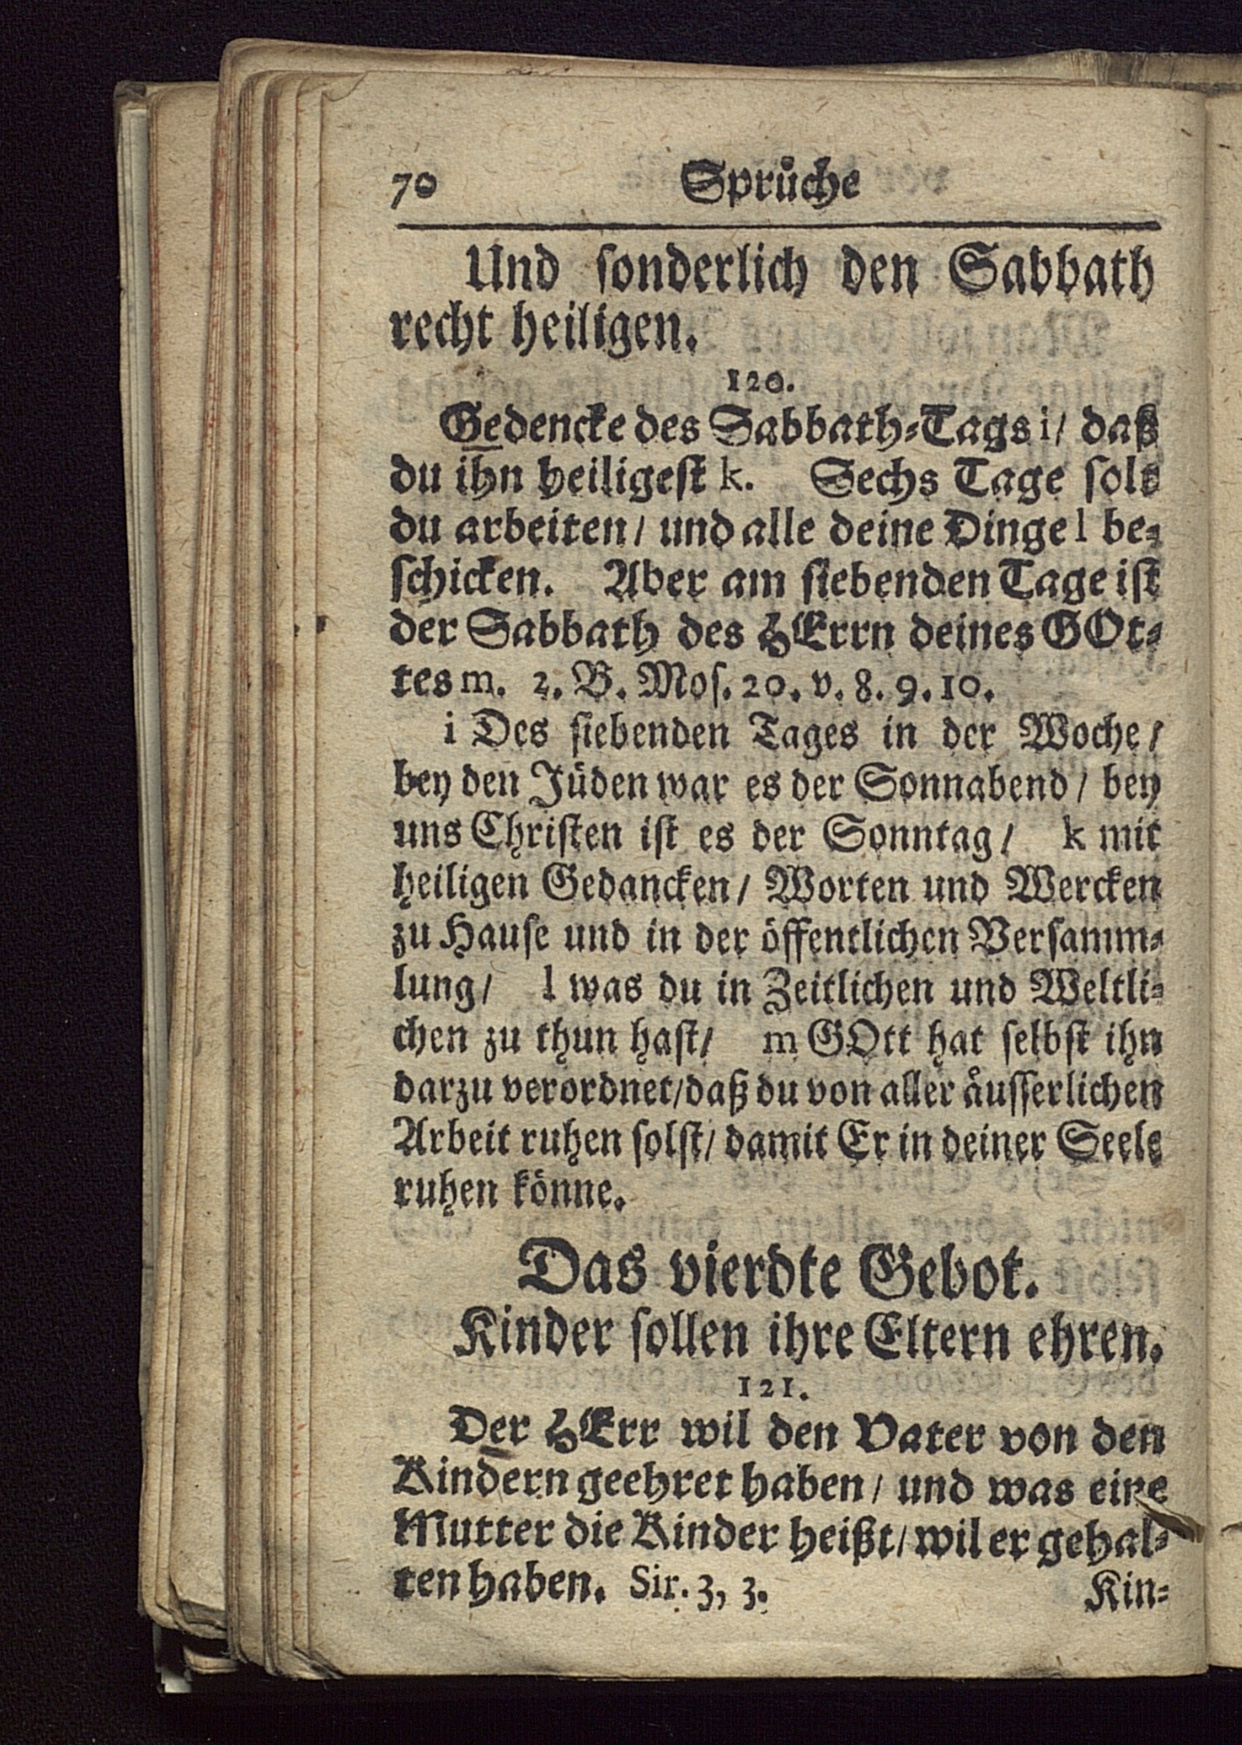 70 Sprůche
Und ſonderlich den Sabbath
recht heiligen.
120.
Gedencke des Sabbath⸗Tags i/ daß
du ihn heiligeſt k. Sechs Tage ſolt
du arbeiten/ und alle deine Dinge l be⸗
ſchicken. Aber am ſiebenden Tage iſt
der Sabbath des HErrn deines GOt⸗
tes m. 2. B. Moſ. 20. v. 8. 9. 10.
i Des ſiebenden Tages in der Woche/
bey den Jüden war es der Sonnabend/ bey
uns Chriſten iſt es der Sonntag/ k mit
heiligen Gedancken/ Worten und Wercken
zu Hauſe und in der öffentlichen Verſamm⸗
lung/ l was du in Zeitlichen und Weltli⸗
chen zu thun haſt/ m GOtt hat ſelbſt ihn
darzu verordnet/daß du von aller åuſſerlichen
Arbeit ruhen ſolſt/ damit Er in deiner Seele
ruhen könne.
Das vierdte Gebot.
Kinder ſollen ihre Eltern ehren.
121.
Der HErr wil den Vater von den
Kindern geehret haben/ und was eine
Mutter die Kinder heißt/ wil er gehal⸗
ten haben. Sir. 3, 3.
Kin⸗